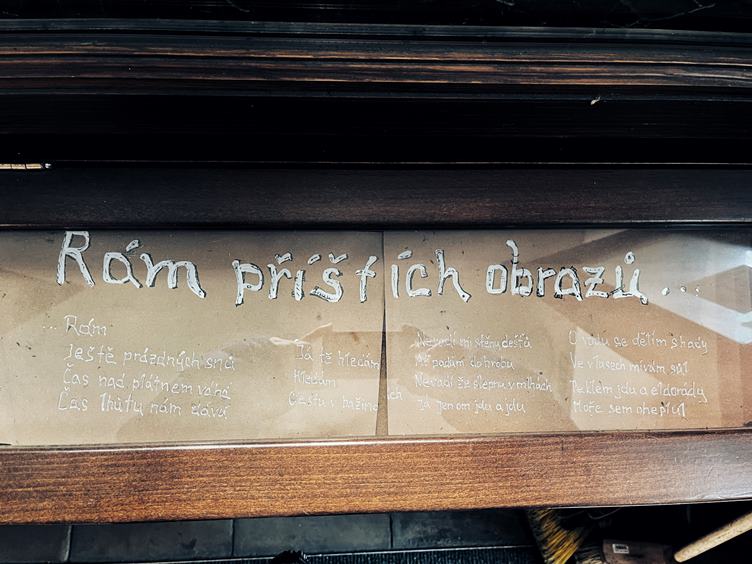 Rám příštích obrazů...
...Rám
Ještě prázdných snů
Čas nad plátnem váhá
Čas lhůtu nám dává
Já tě hledám
Hledám
Cestu v bažinách
Nevadí mi stěny dešťů
Ať padám do hrobu
Nevadí že slepnu v mlhách
Já jenom jdu a jdu
O vodu se dělím s hady
Ve vlasech mívám sůl
Peklem jdu a eldorády
Moře sem